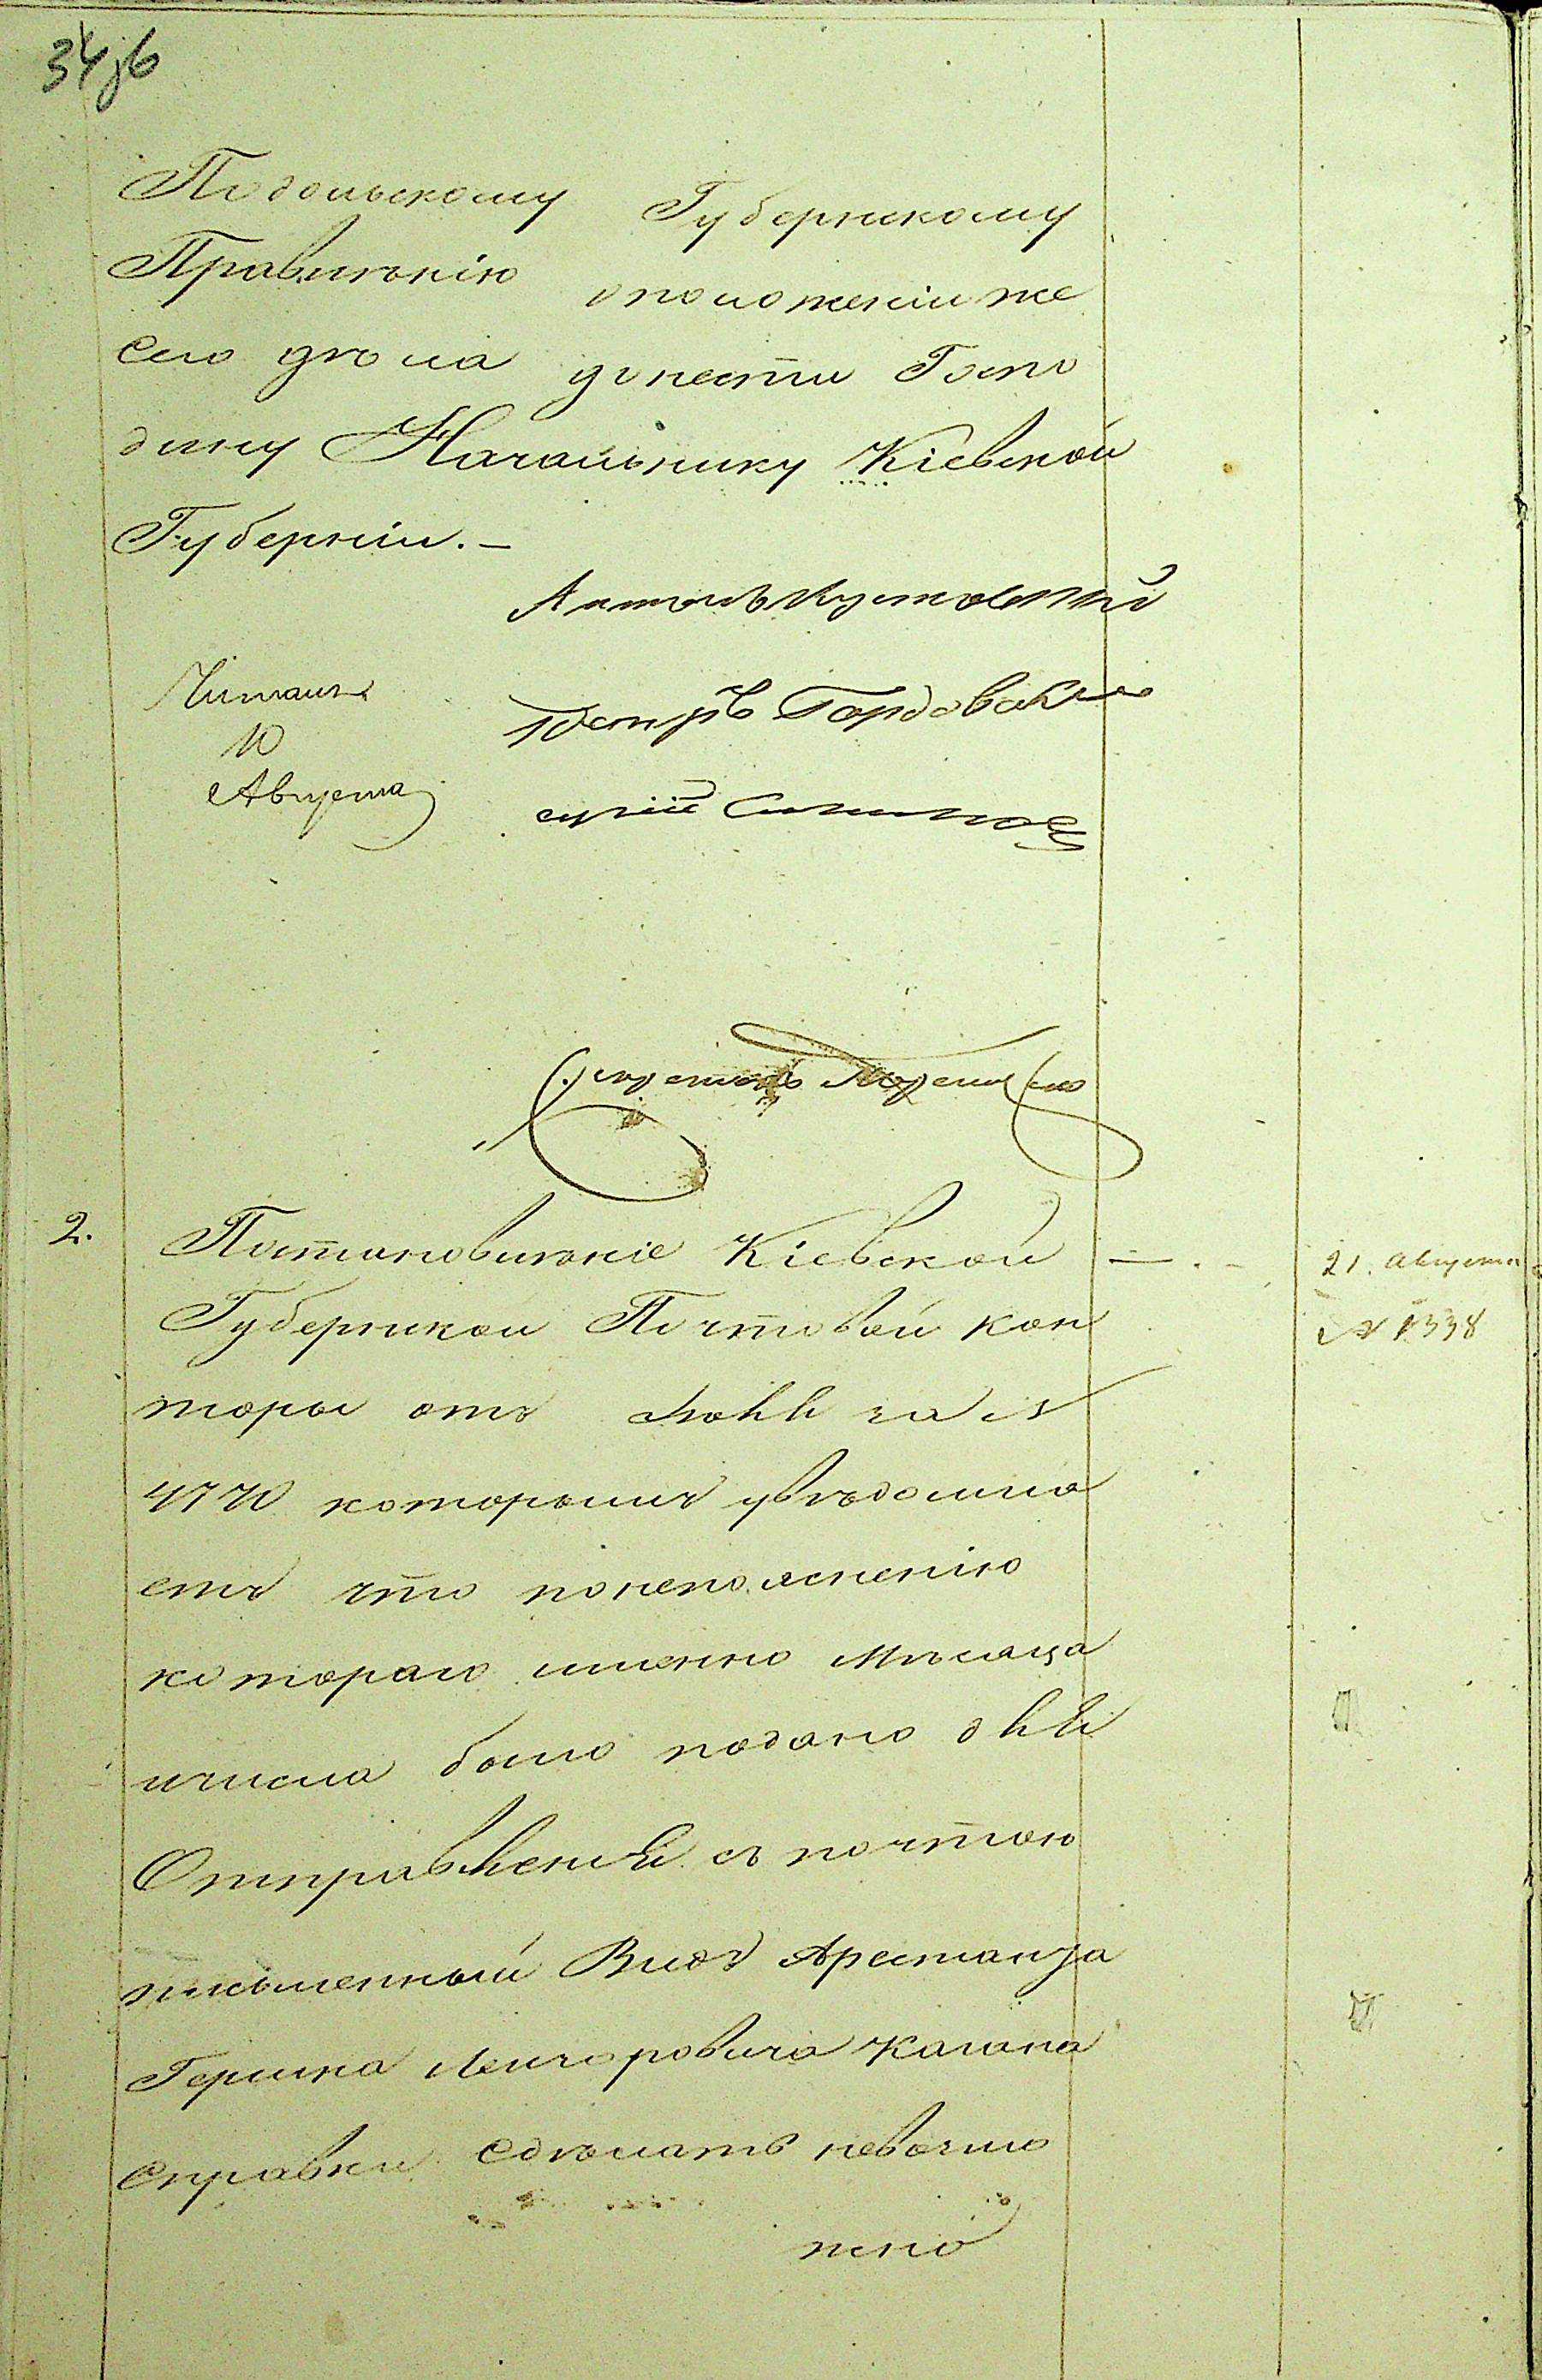 34 об
Подольскому Губернскому
Правленію оположеніи же
сего дѣла донести Госпо
дину Начальнику Кіевской
Губерніи. —
Читалъ
10
Августа
Антонъ
Петръ Гордовскій
Секретарь
2. Постановленіе Кіевской — . -
Губернской Почтовой кон
торы отъ Іюля за №
4770 которымъ увѣдомля
етъ что понепоясненію
котораго именно Мѣсяца
ичисла было подано для
Отправленія съ почтою
письменный Видъ Арестанта
Гершка Лейзоровича Кагана
справки сдѣлать невозмо
жно
21. Августа
№ 1338